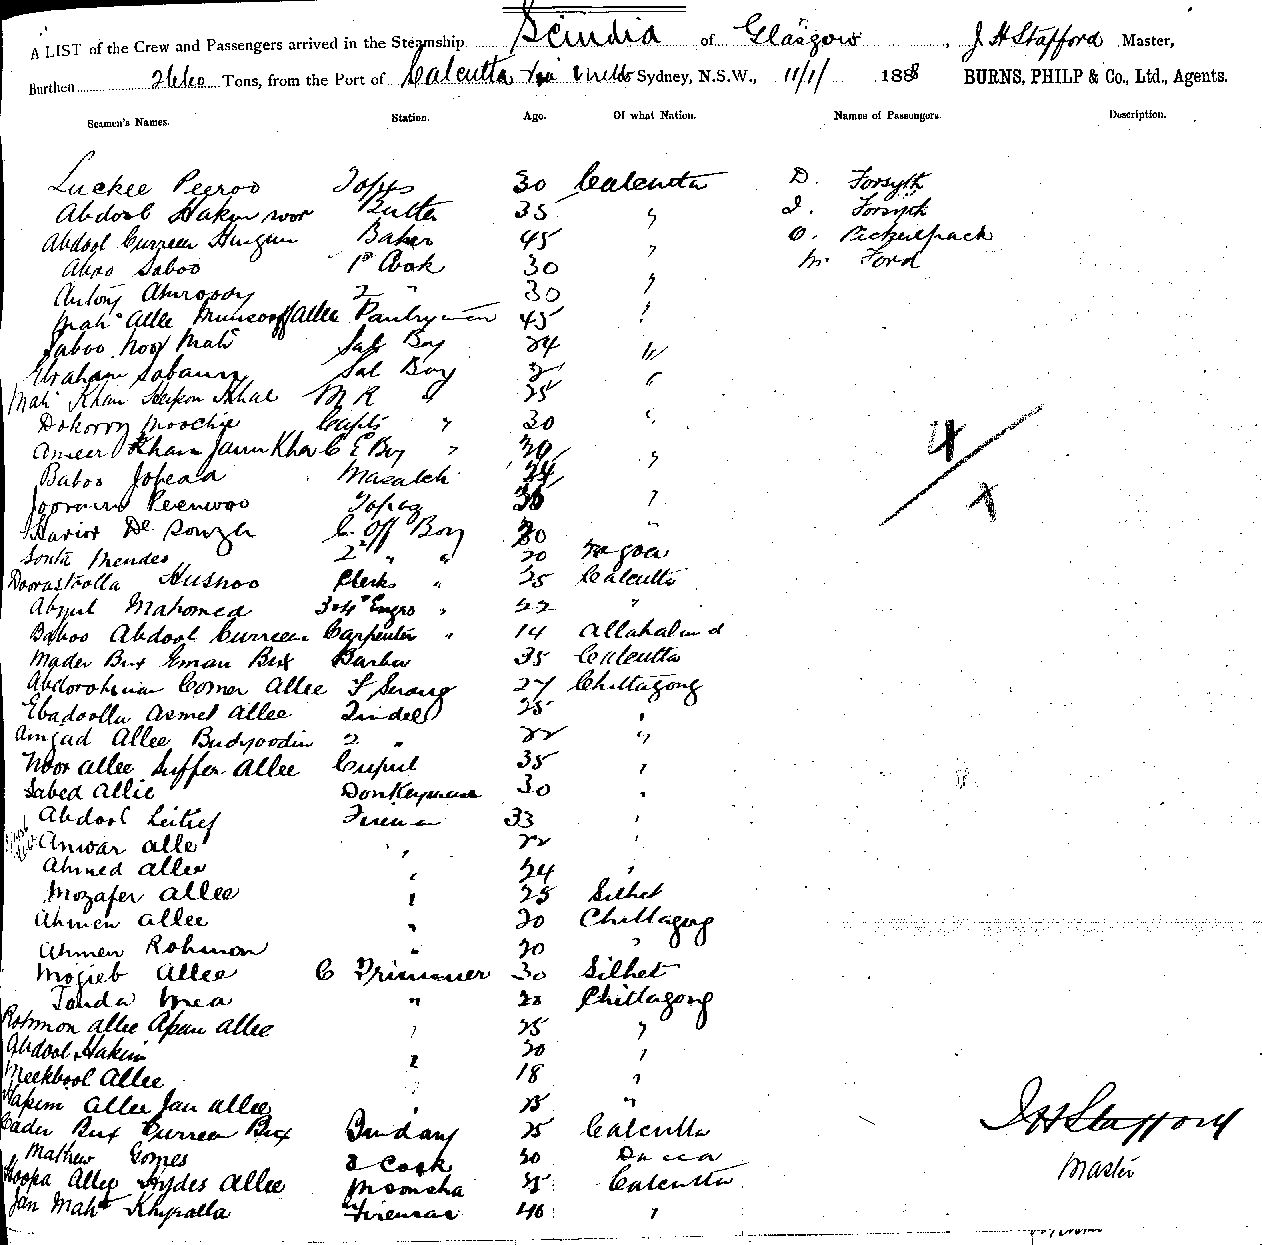 A LIST of the Crew and Passengers arrived in the Steamship Scindia of Glasgow, J H Stafford Master,
Burthen Tons, from the Port of Calcutta via Sydney, N.S.W., 11/1/ 1888 BURNS, PHILP & Co., Ltd., Agents.
Seamen's Names. Station. Age. Of what Nation. Names of Passengers. Description.
Luckee Peeroo Topas 30 Calcutta D. Forsyth
Abdool Hakim Butler 35 " J. Forsyth
Abdool Curreem Baker 45 " O. Pickelpack
Abdo Saboo 1st Cook 30 " M. Ford
Antony 2 " 30 "
Mahd Allee Allee Pantryman 45 "
Jaboo Noor Mahd Sal Boy 24 "
Ebraham Sal Boy "
Mahd Khan Khal M R " 25 "
Dokorry Moochie Capts " 30 "
Ameer Khan Jaun Khan C E Boy " "
Baboo Mazalchi "
Peerwoo Topaz "
De Souza C. Off Boy "
Mendes 2nd " " 20 Goa
Doorastoolla Husnoo Clerks " 25 Calcutta
Abzul Mahomed 3 & 4th Engrs " 22 "
Baboo Abdool Curreem Carpenter " 14 Allahabad
Mader Bux Eman Bux Barber 35 Calcutta
Abdorohman Comer Allee F Serang 27 Chittagong
Ebadoolla Asmet Allee Tindel 25 "
Amjad Allee Budyoodin 2 " 22 "
Noor Allee Suffer Allee 35 "
Sabed Allie Donkeyman 30 "
Abdool Fireman 33 "
Anwar Alle " 22 "
Ahmed Allee " 24 "
Mozafer Allee " 25 Silhet
Ahmen Allee " 20 Chittagong
Ahmen Rohmon " 20 "
Mojieb Allee C Trimmer 30 Silhet
Tanda Mea " Chittagong
Rohmon Allee Apau Allee " 25 "
Abdool Hakim " 20 "
Meekbool Allee " 18 "
Hakim Allee Jan Allee "
Cader Bux Curreem Bux 25 Calcutta
Mathew Gomes 2 Cook 30 Dacca
Allee Allee Calcutta
Jan Mahd Khyralla Fireman 40 "
4/x
J H Stafford
Master